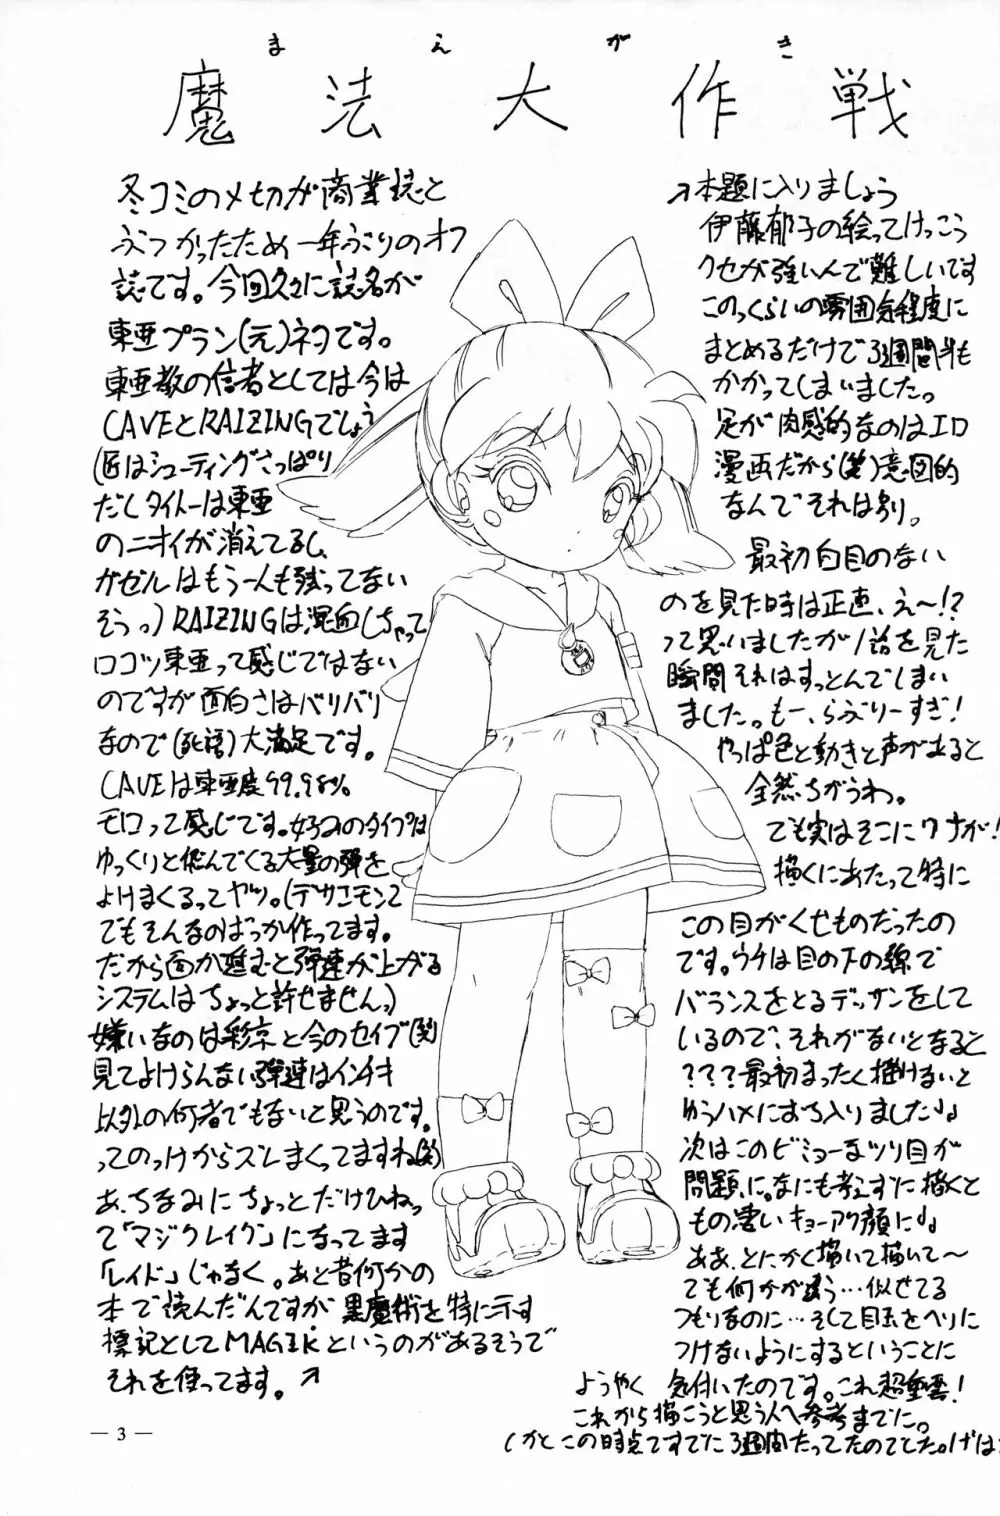 まえがき
魔法大作戦
冬コミの〆切が商業誌と
ぶつかったため一年ぶりのオフ
誌です。今回久々に誌名が
東亜プラン(元)ネタです。
東亜教の信者としては今は
CAVEとRAIZINGでしょう
(匠はシューティングさっぱり
だしタイトーは東亜
のニオイが消えてるし、
ガゼルはもう一人も残ってない
そうっ)RAIZINGは、混血しちゃって
ロコツ東亜って感じではない
のですが面白さはバリバリ
なので(死語)大満足です。
CAVEは東亜度99.98%
モロって感じです。好みのタイプは
ゆっくりと飛んでくる大量の弾を
よけまくるってヤツ。(デザエモンで
でもそんなのばっか作ってます。
だから面が進むと弾速が上がる
システムはちょっと許せませんっ)
嫌いなのは彩京と今のセイブ(笑)
見てよけらんない弾速はインチキ
以外の何者でもないと思うのです。
ってのっけからズレまくってますね(笑)
あ、ちなみにちょっとだけひねっ
て「マジクレイグ」になってます
「レイド」じゃなく。あと昔何かの
本で読んだんですが黒魔術を特に示す
標記としてMAGIKというのがあるそうで
それを使ってます。↗
↗本題に入りましょう
伊藤郁子の絵ってけっこう
クセが強いんで難しいです
このっくらいの雰囲気程度に
まとめるだけで3週間半も
かかってしまいました。
足が肉感的なのはエロ
漫画だから(笑)意図的
なんでそれは別。
最初白目のない
のを見た時は正直、え〜!?
って思いましたが1話を見た
瞬間それはすっとんでしまい
ました。もー、らぶりーすぎ!
やっぱ色と動きと声があると
全然ちがうわ。
でも実はそこにワナが!
描くにあたって特に
この目がくせものだったの
です。ウチは目の下の線で
バランスをとるデッサンをして
いるので、それがないとなると
???最初まったく描けないと
ゆうハメにおち入りました♩。
次はこのビミョーなツリ目が
問題に。なにも考えずに描くと
もの凄いキョーアク顔に♩。
ああ、とにかく描いて描いて〜
でも何かが違う…似せてる
つもりなのに…そして目玉をヘリに
つけないようにするということに
ようやく気付いたのです。これ超重要!
これから描こうと思う人へ参考までに。
(かとこの時点ですでに3週間たってたのでした。げは
— 3 —